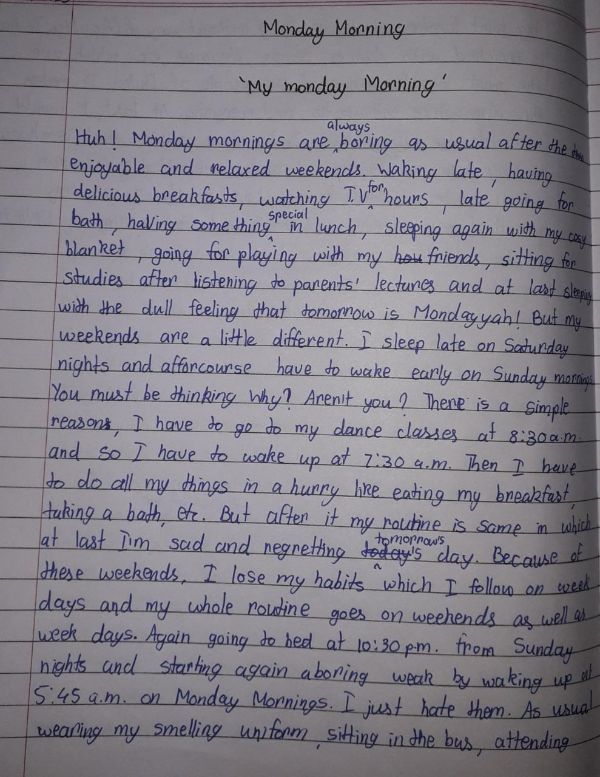 Monday Morning
'My monday Morning'
Huh! Monday mornings are always boring as usual after the the
enjoyable and relaxed weekends. Waking late, having
delicious breakfasts, watching T.V for hours, late going for
bath, having something special in lunch, sleeping again with my cosy
blanket, going for playing with my hou friends, sitting for
studies after listening to parents' lectures and at last sleeping
with the dull feeling that tomorrow is Monday yah! But my
weekends are a little different. I sleep late on Saturday
nights and afforcourse have to wake early on Sunday mornings
You must be thinking Why? Aren't you? There is a simple
reasons, I have to go to my dance classes at 8:30 a.m.
and so I have to wake up at 7:30 a.m. Then I have
to do all my things in a hurry like eating my breakfast,
taking a bath, etc. But after it my routine is same in which
at last I'm sad and negretting today's tomorrow's day. Because of
these weekends, I lose my habits which I follow on week
days and my whole routine goes on weekends as well as
week days. Again going to bed at 10:30 pm. from Sunday
nights and starting again a boring weak by waking up at
5:45 a.m. on Monday Mornings. I just hate them. As usual
wearing my smelling uniform, sitting in the bus, attending